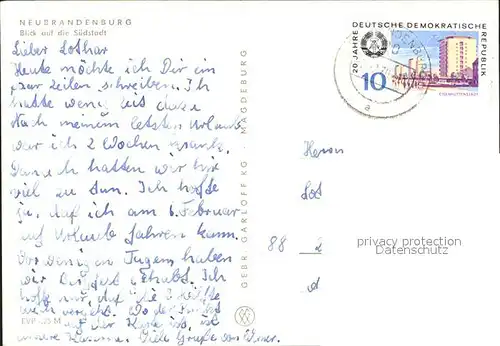 NEUBRANDENBURG
Blick auf die Südstadt
Lieber Lothar
Heute möchte ich Dir ein
paar Zeilen schreiben. Ich
hatte wenig Zeit dazu
Nach meinem letzten Urlaub
war ich 2 Wochen krank.
Danach hatten wir hier
viel zu tun. Ich hoffe
ja, daß ich am 6. Februar
auf Urlaub fahren kann.
Vor wenigen Tagen haben
wir gehabt. Ich
hoffe nur, daß die Hälfte
auch vergeht. Wo der
auf der Karte ist, ist
unsere Kaserne. Viele Grüße von
EVP -,25 M
GEBR. GARLOFF KG MAGDEBURG
20 JAHRE DEUTSCHE DEMOKRATISCHE REPUBLIK
10
EISENHÜTTENSTADT
a
Herrn
Lot
88
d
privacy protection
Datenschutz